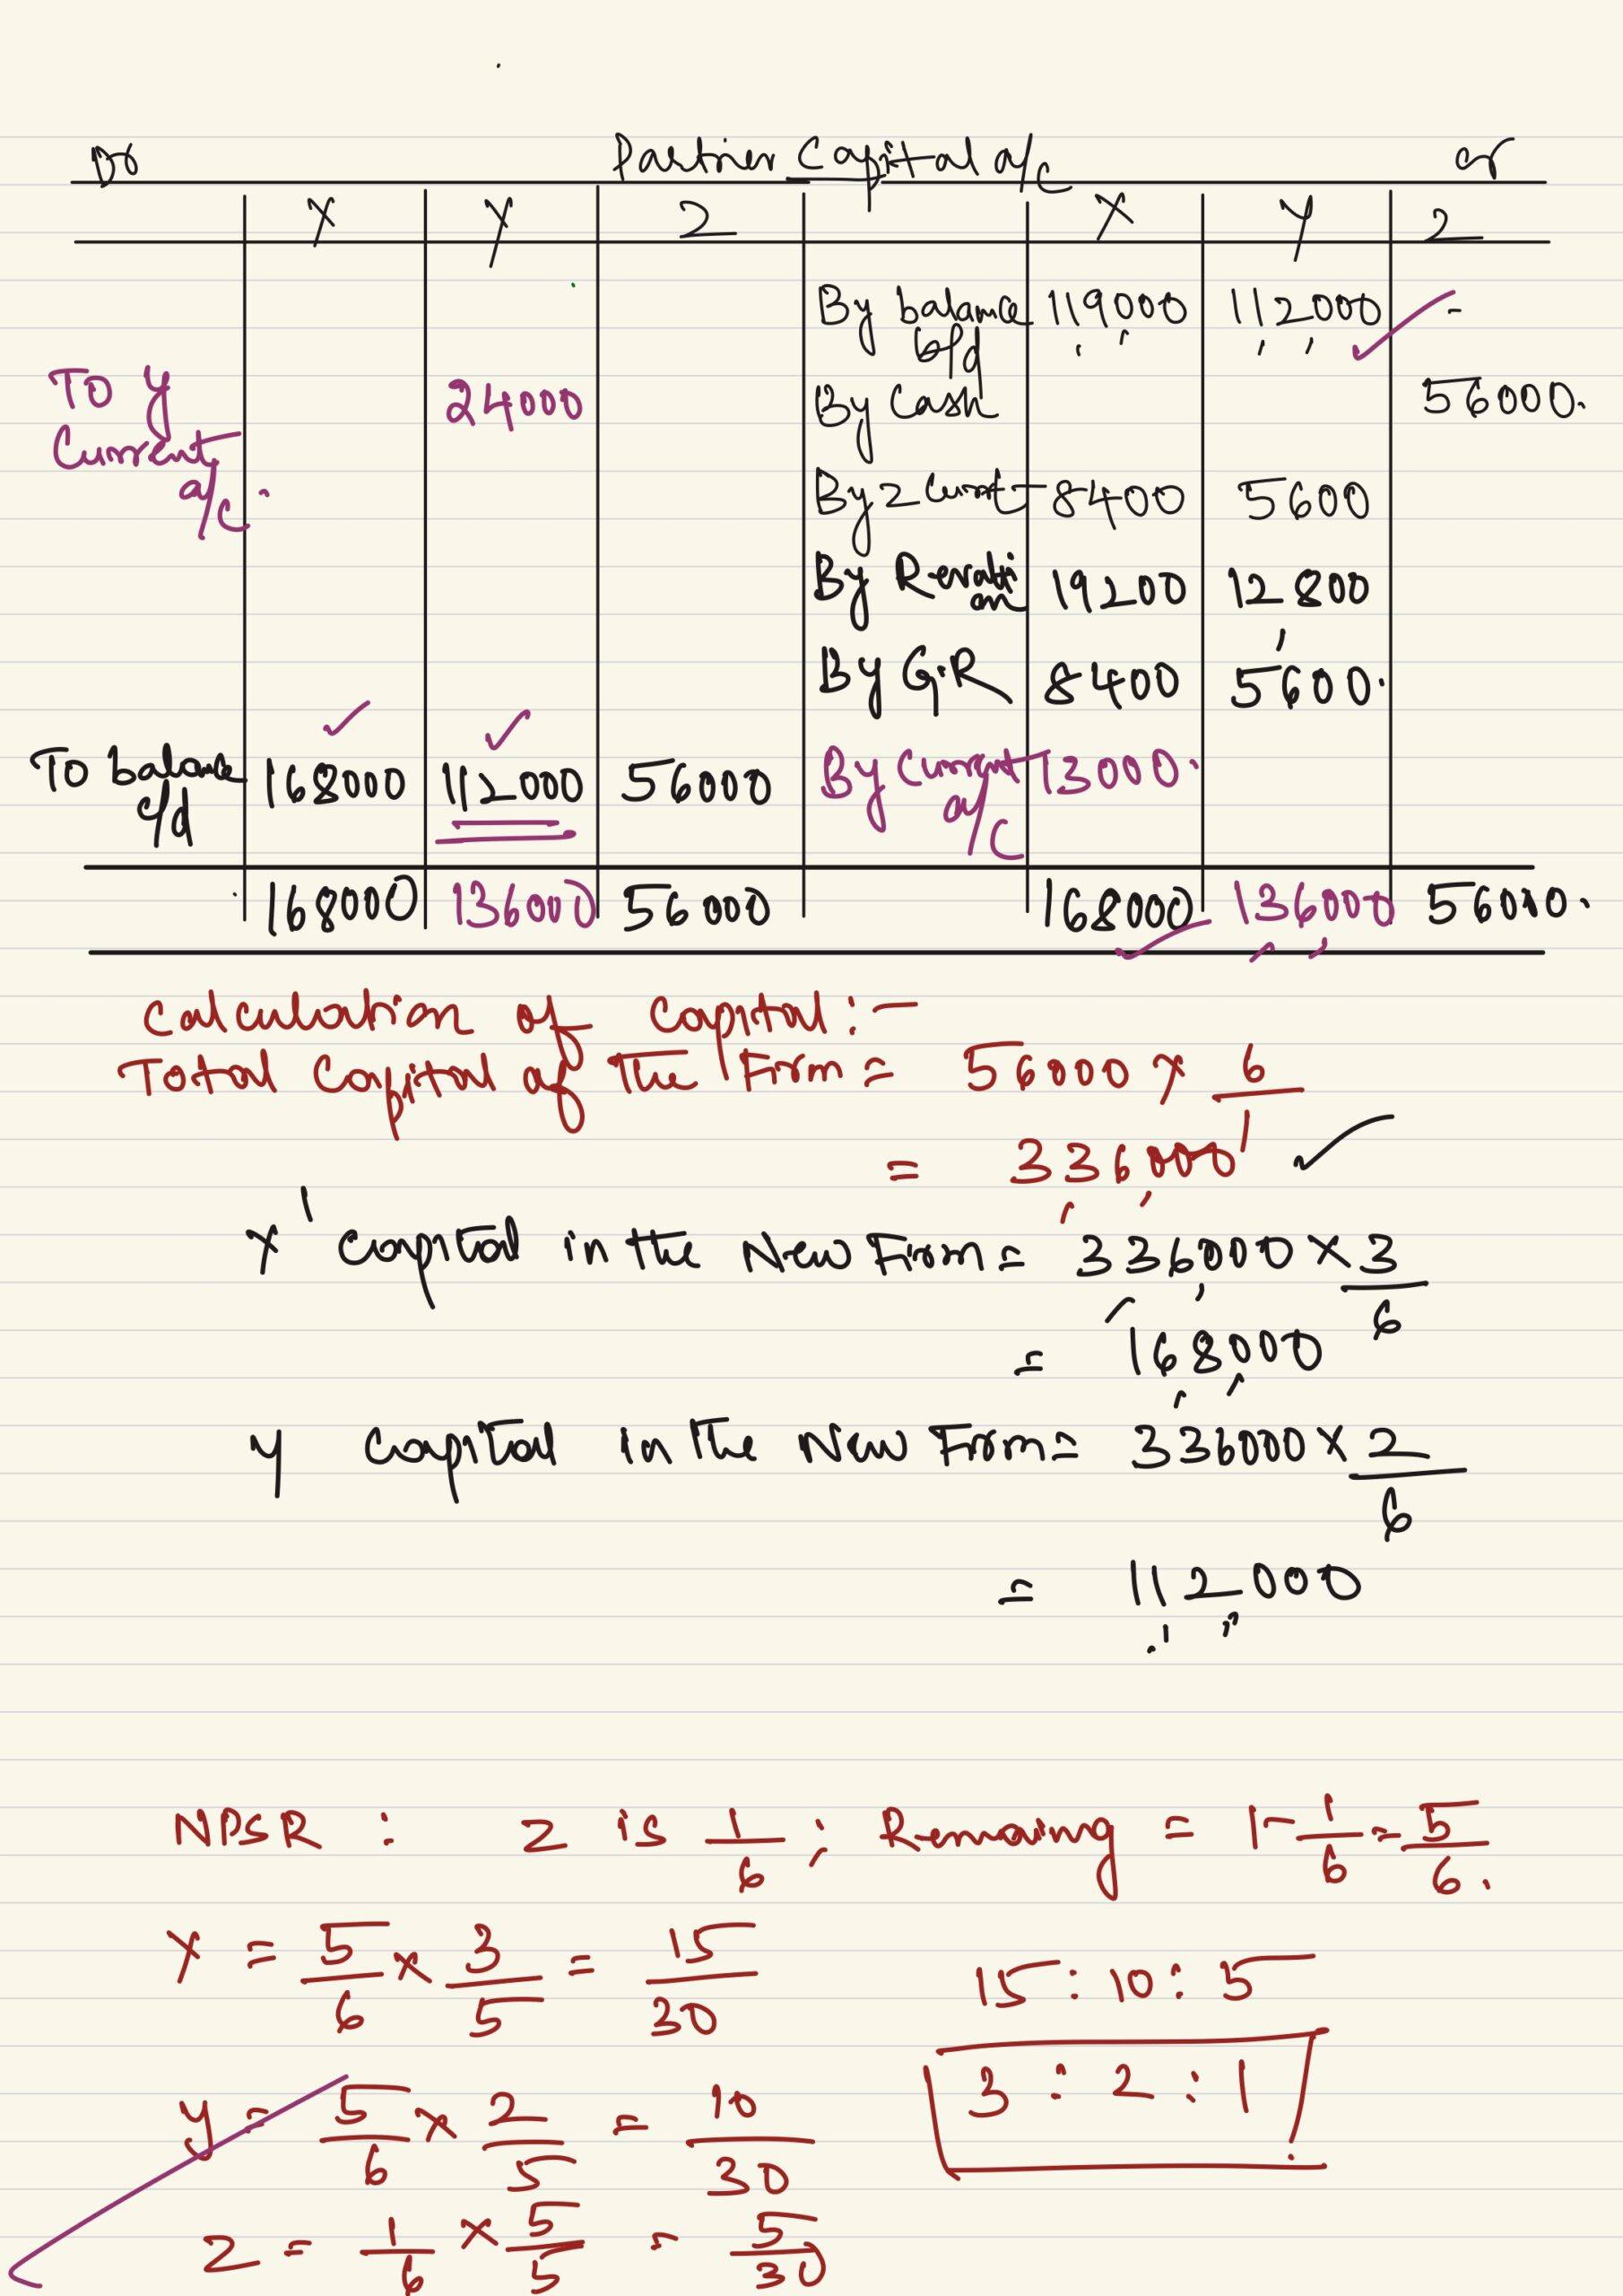 Dr Partners Capital a/c Cr
X Y Z X Y Z
By balance b/d 119000 112000 -
To Y Current a/c. 24000 By Cash 56000.
By Z Current 8400 5600
By Revaluation 19200 12800
By G.R 8400 5600.
To balance c/d 168000 112000 56000 By Current a/c 13000.
168000 136000 56000 168000 136000 56000.
Calculation of Capital :-
Total Capital of the Firm = 56000 × 6/1
= 336000
X' Capital in the New Firm = 336000 × 3/6
= 168000
Y Capital in the New Firm = 336000 × 2/6
= 112000
NPSR : Z is 1/6 ; Remaining = 1 - 1/6 = 5/6.
X = 5/6 × 3/5 = 15/30 15 : 10 : 5
Y = 5/6 × 2/5 = 10/30 3 : 2 : 1
Z = 1/6 × 5/5 = 5/30